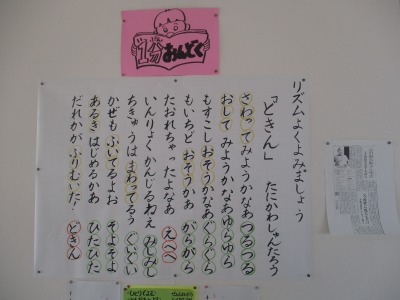 1分間
おんどく
リズムよくよみましょう
「どきん」 たにかわしゅんたろう
さわってみようかなあ つるつる
おしてみようかなあ ゆらゆら
もすこしおそうかなあ ぐらぐら
もいちどおそうかあ がらがら
たおれちゃったよなあ えへへ
いんりょくかんじるねえ みしみし
ちきゅうはまわってるう ぐいぐい
かぜもふいてるよお そよそよ
あるきはじめるかあ ひたひた
だれかがふりむいた! どきん